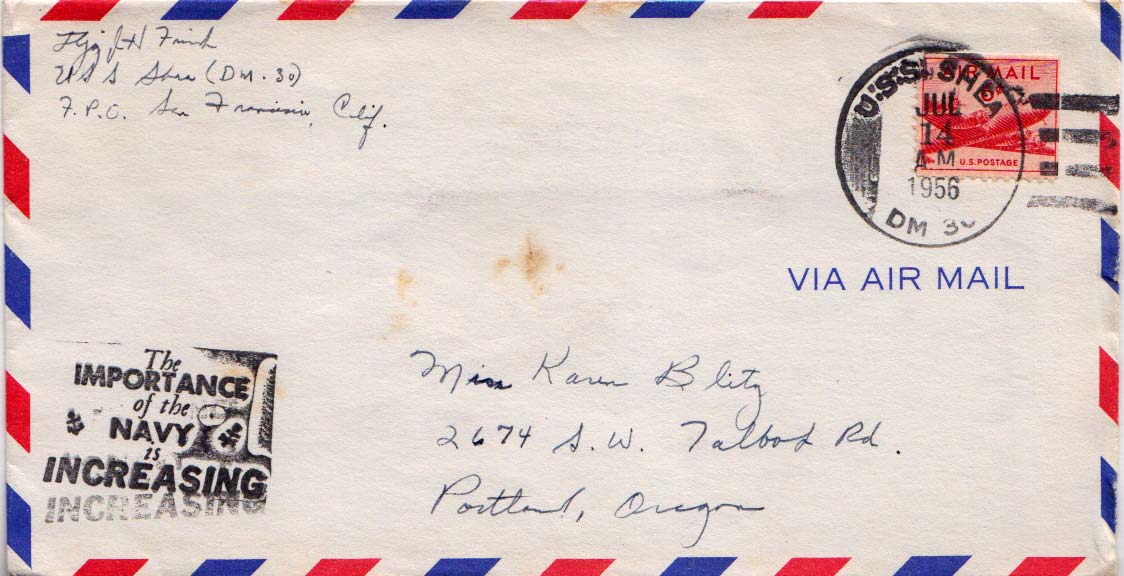 Ltjg J H Finch
USS Shea (DM-30)
F.P.O. San Francisco, Calif.
U.S.S. SHEA
JUL
14
A.M
1956
DM 30
AIR MAIL
6¢
U.S. POSTAGE
VIA AIR MAIL
Miss Karen Blitz
2674 S.W. Talbot Rd.
Portland, Oregon
The
IMPORTANCE
of the
NAVY
is
INCREASING
INCREASING